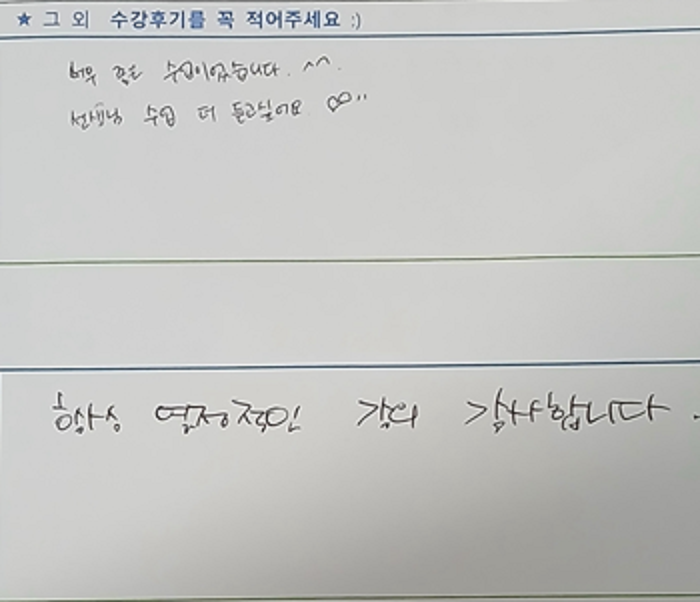 ★ 그 외 수강후기를 꼭 적어주세요 :)
너무 좋은 수업이었습니다. ^^.
선생님 수업 더 듣고싶어요 ♡..
항상 열정적인 강의 감사합니다.